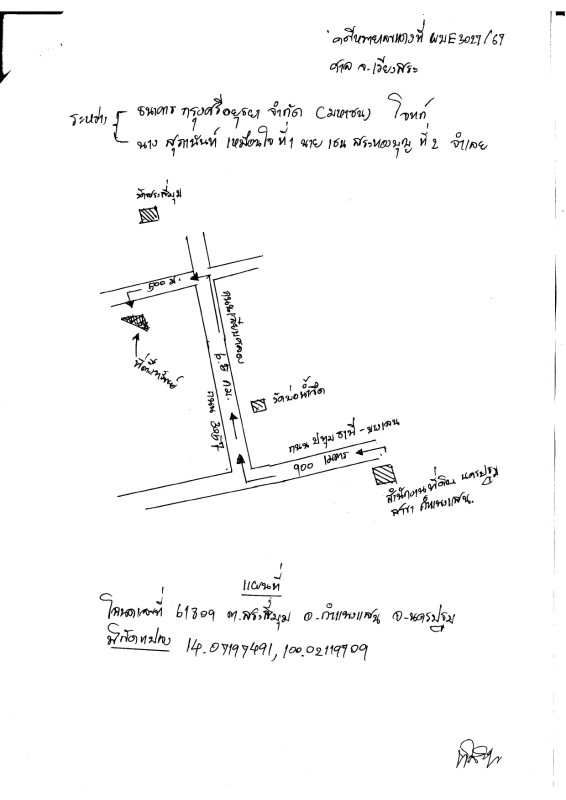 คดีหมายเลขแดงที่ ผบE3027/67
ศาล จ.เวียงสระ
ระหว่าง
ธนาคาร กรุงศรีอยุธยา จำกัด (มหาชน) โจทก์
นาง สุภานันท์ เหมือนใจ ที่1 นาย เชน สระทองบุญ ที่ 2 จำเลย
วัดสระสี่มุม
500 ม.
ที่ตั้งทรัพย์
ถนนเลียบคลอง
กม.
ถนน
วัดบ่อน้ำจืด
ถนน ปทุมธานี - บางเลน
900 เมตร
สำนักงานที่ดิน นครปฐม
สาขา กำแพงแสน.
แผนที่
โฉนดเลขที่ 61809 ต.สระสี่มุม อ.กำแพงแสน จ.นครปฐม
พิกัดแปลง 14.07197491, 100.02119709